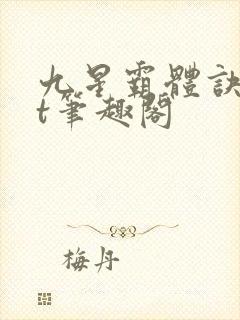 九星霸體訣
t筆趣閣
梅丹